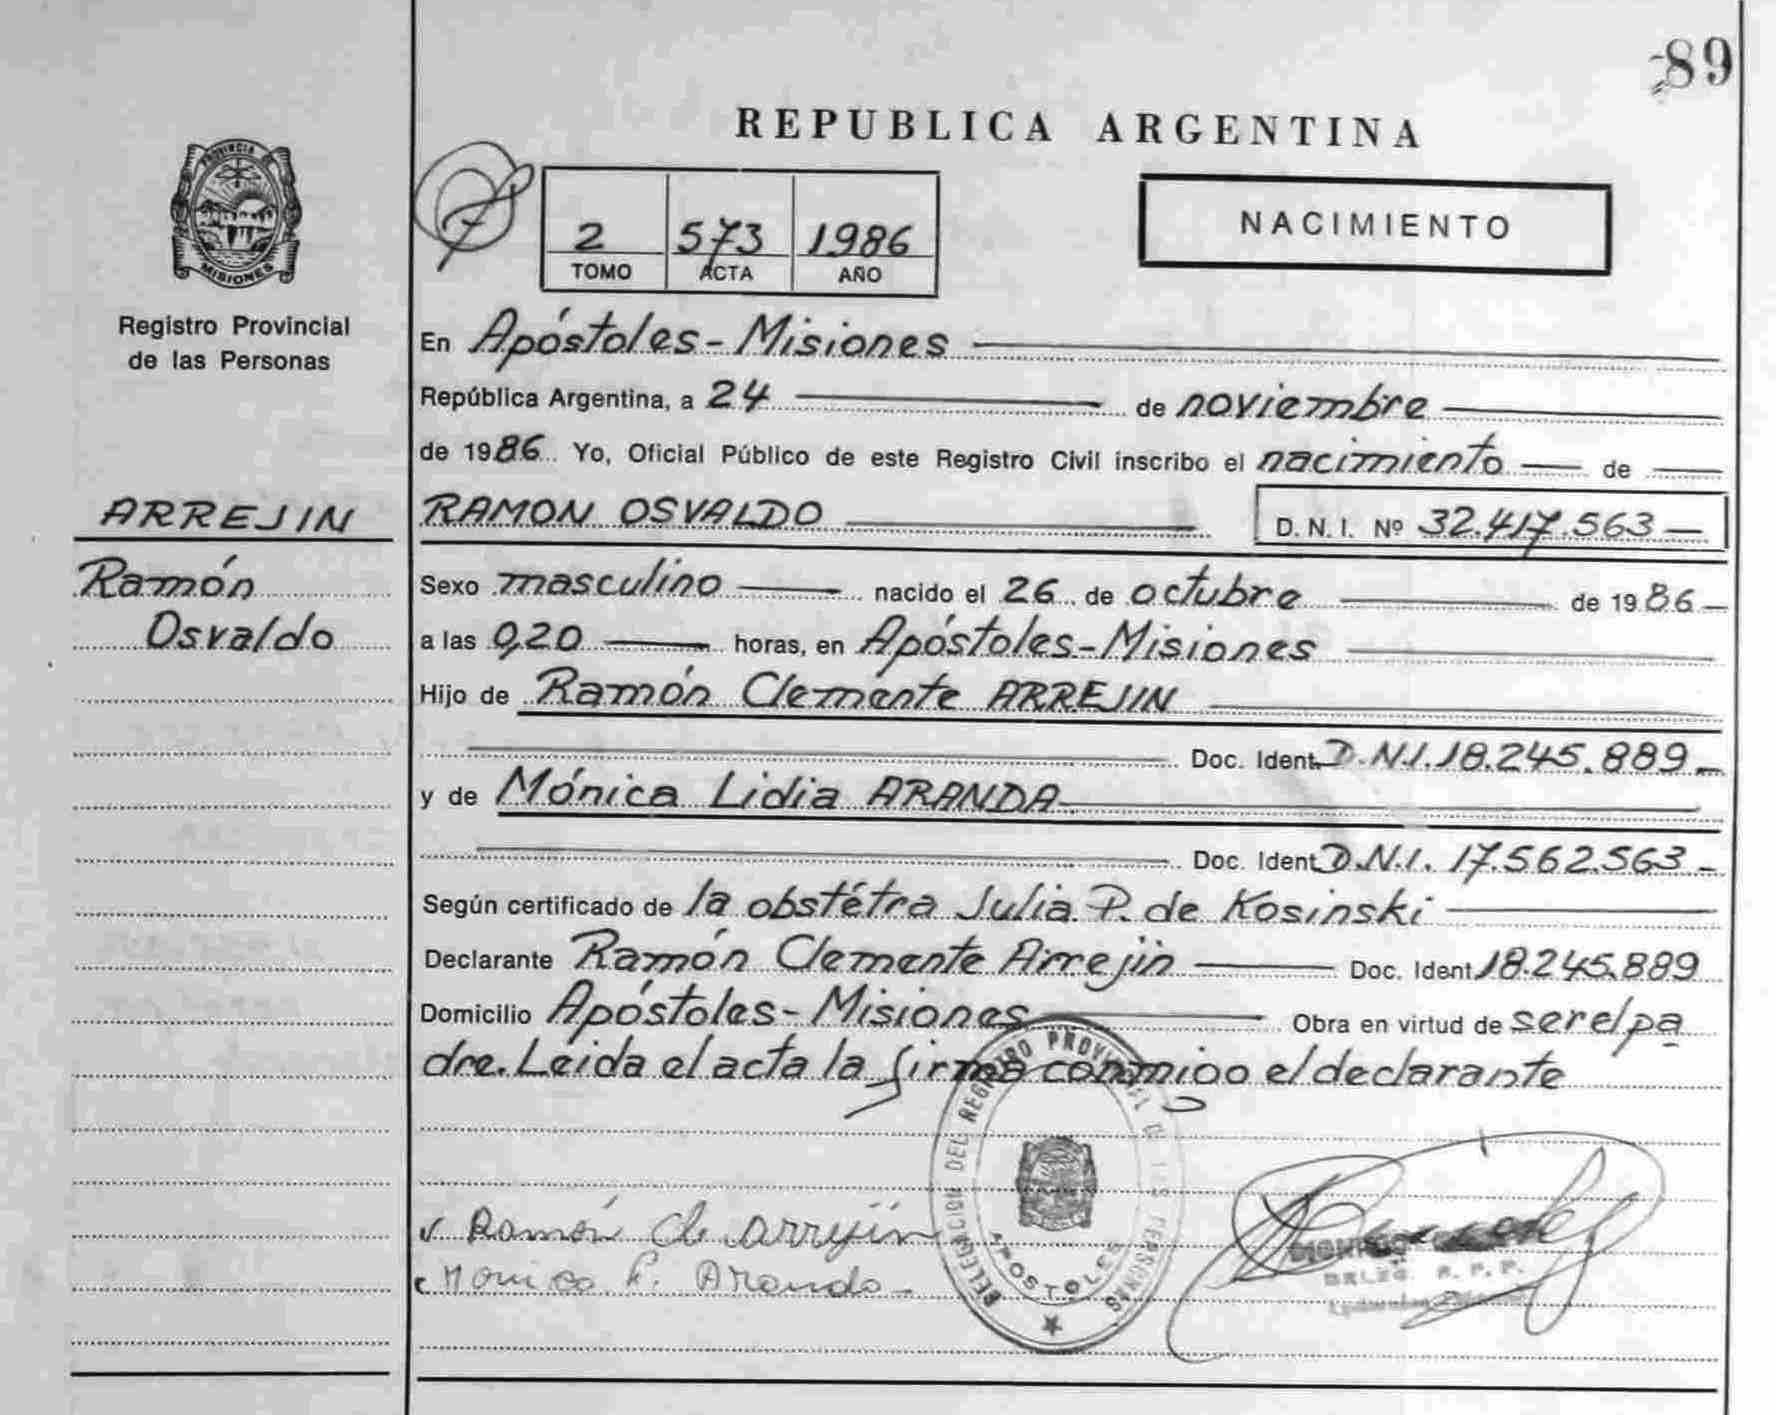 89
REPUBLICA ARGENTINA
PROVINCIA DE
MISIONES
Registro Provincial
de las Personas
2 573 1986
TOMO ACTA AÑO
NACIMIENTO
En Apóstoles-Misiones
República Argentina, a 24 de noviembre
de 1986 Yo, Oficial Público de este Registro Civil inscribo el nacimiento de
ARREJIN RAMON OSVALDO D. N. I. Nº 32.417.563
Ramón Sexo masculino nacido el 26 de octubre de 1986
Osvaldo a las 0,20 horas, en Apóstoles-Misiones
Hijo de Ramón Clemente ARREJIN
Doc. Ident. D.N.I. 18.245.889
y de Mónica Lidia ARANDA
Doc. Ident D.N.I. 17.562.563
Según certificado de la obstétra Julia P. de Kosinski
Declarante Ramón Clemente Arrejin Doc. Ident 18.245.889
Domicilio Apóstoles-Misiones Obra en virtud de ser el pa
dre. Leida el acta la firma conmigo el declarante
Ramón Cle Arrejín
Monica L. Aranda
DELEGACION DEL REGISTRO PROVINCIAL DE LAS PERSONAS
APOSTOLES
DELEG. R. P. P.